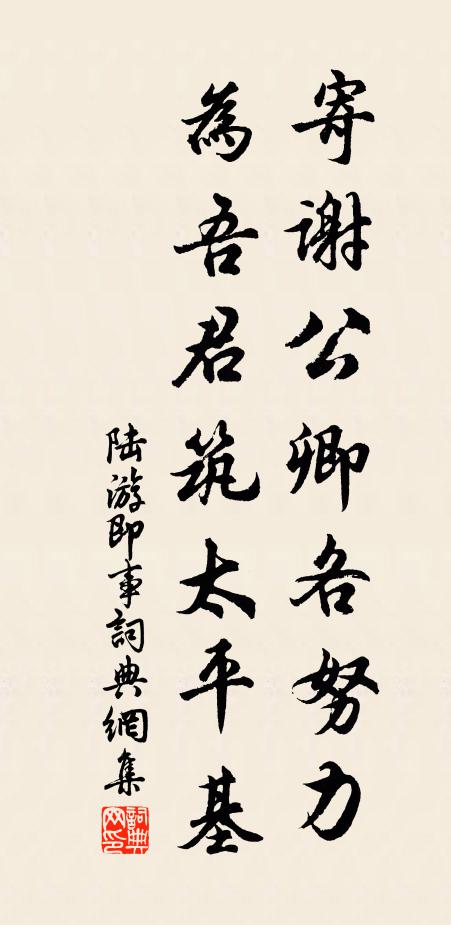 寄谢公卿各努力
為吾君筑太平基
陆游即事詞典網集
詞典网印